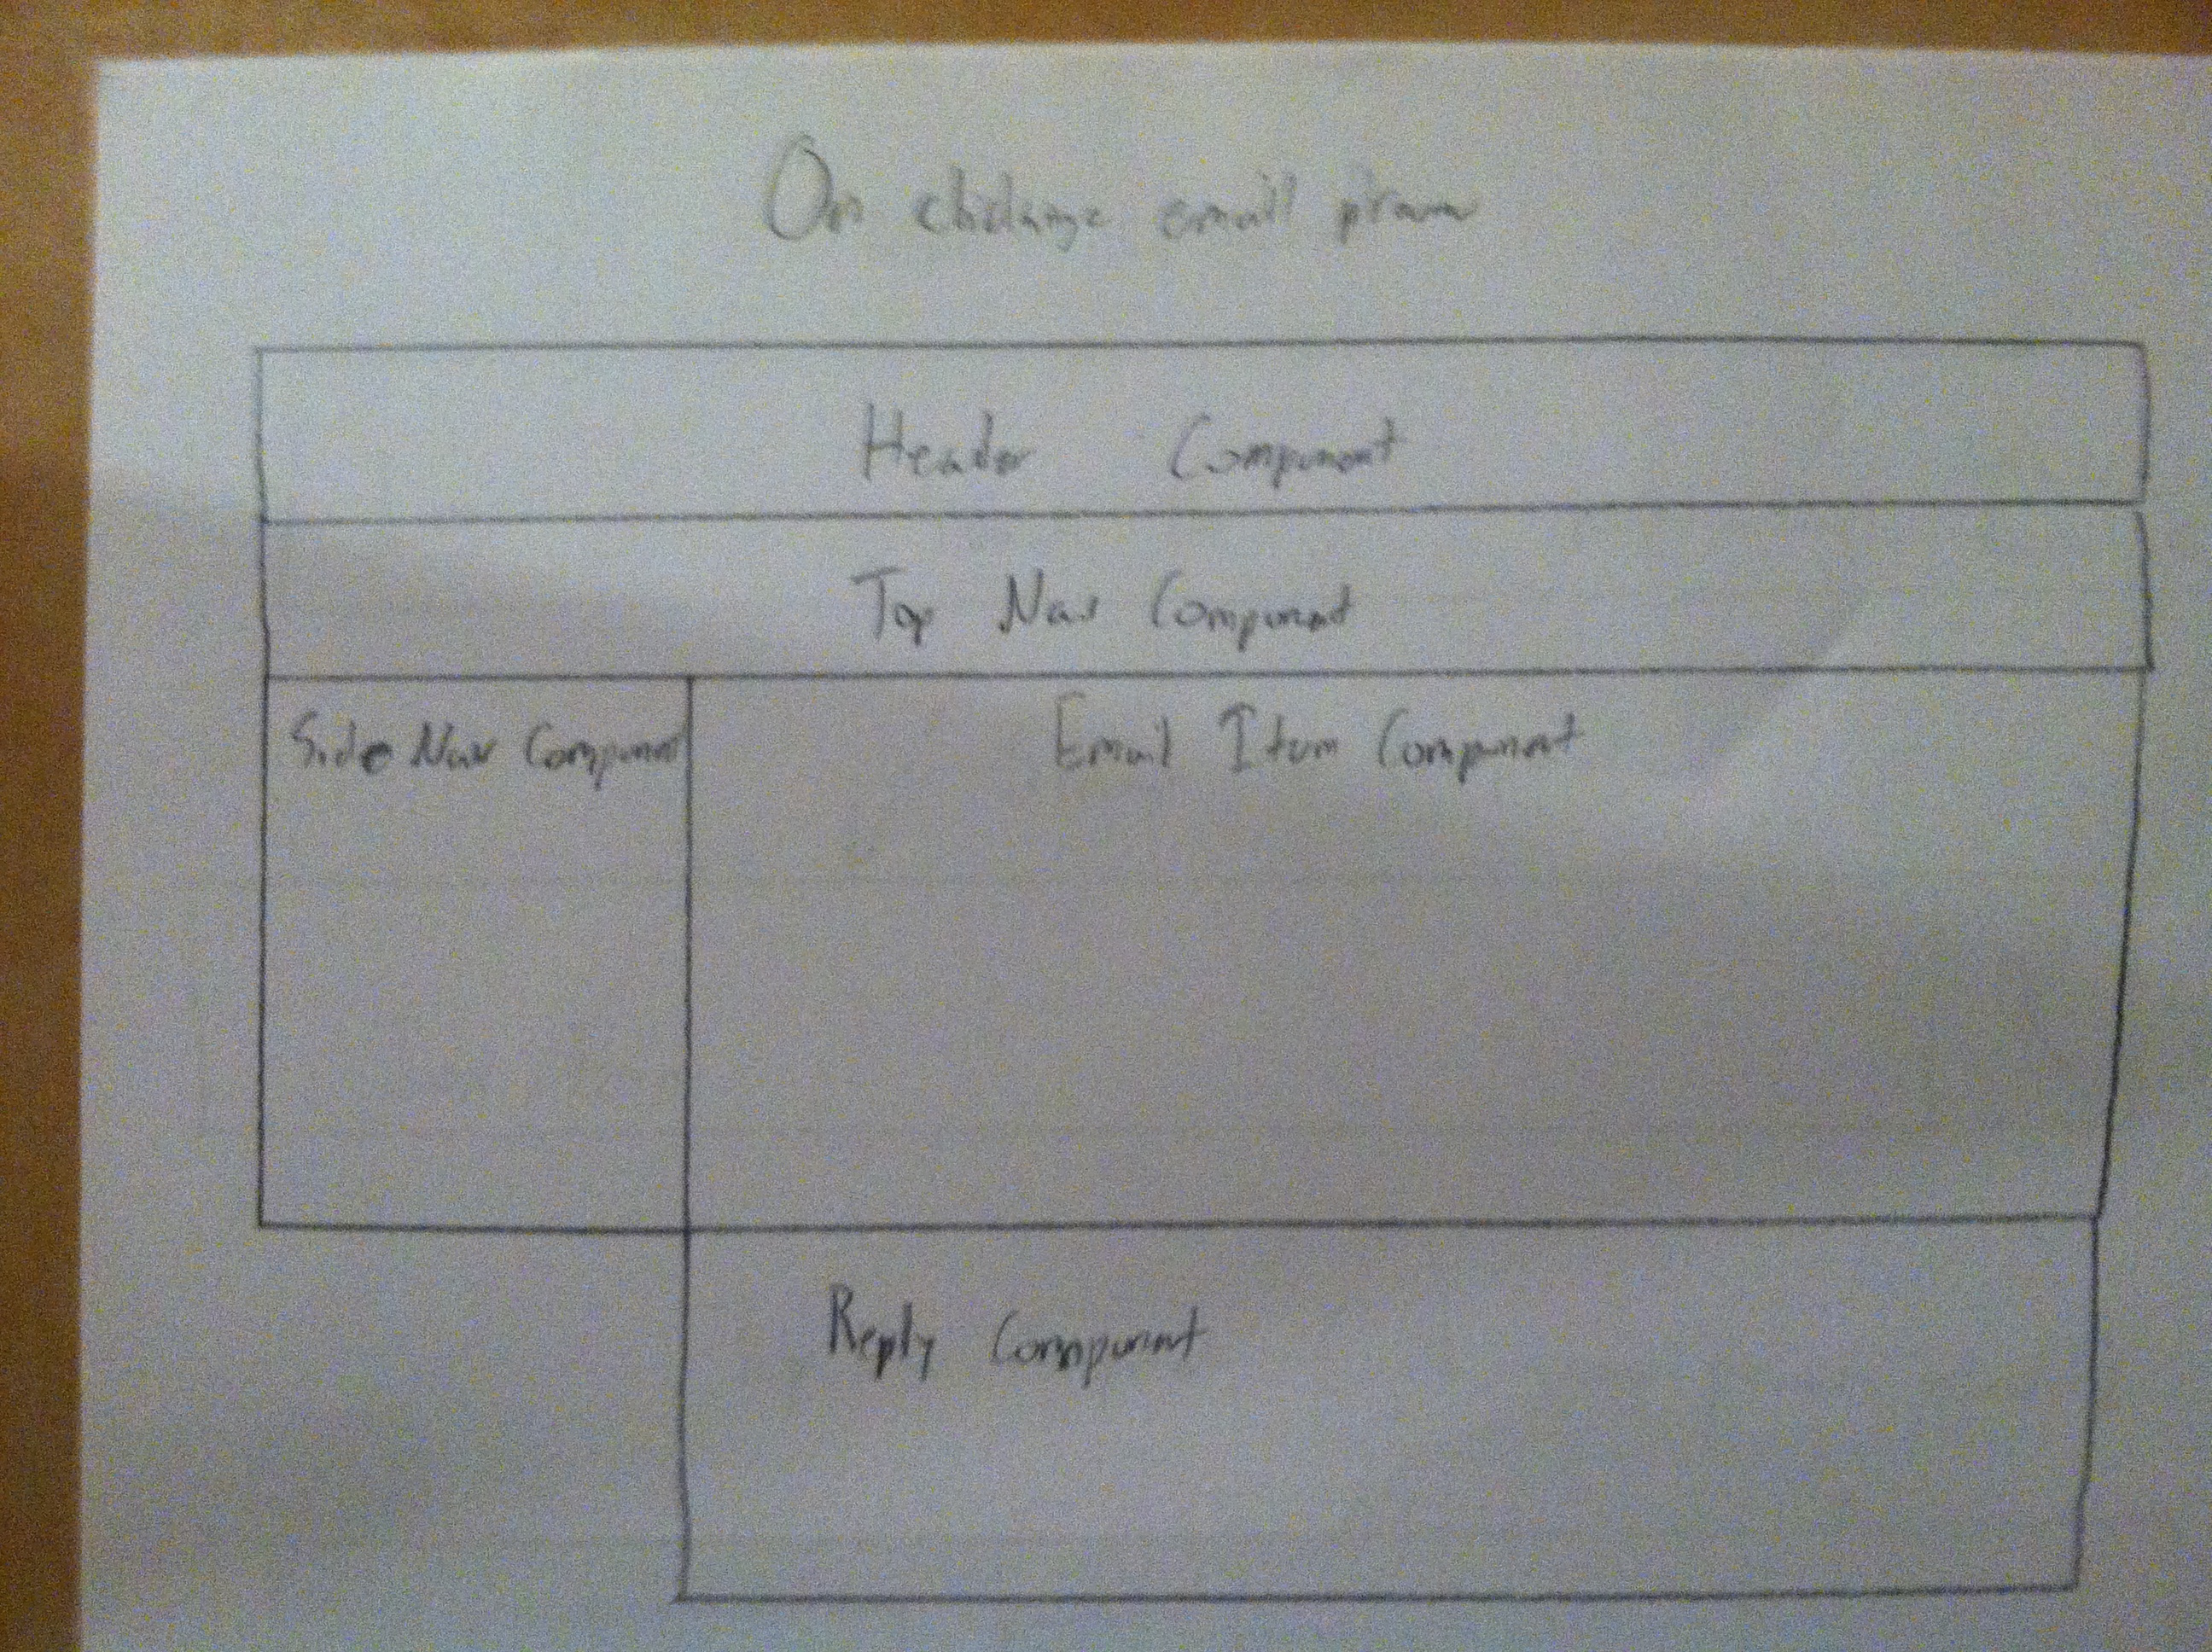 On email
Header Component
Top Nav Component
Side Nav Component
Email Item Component
Reply Component